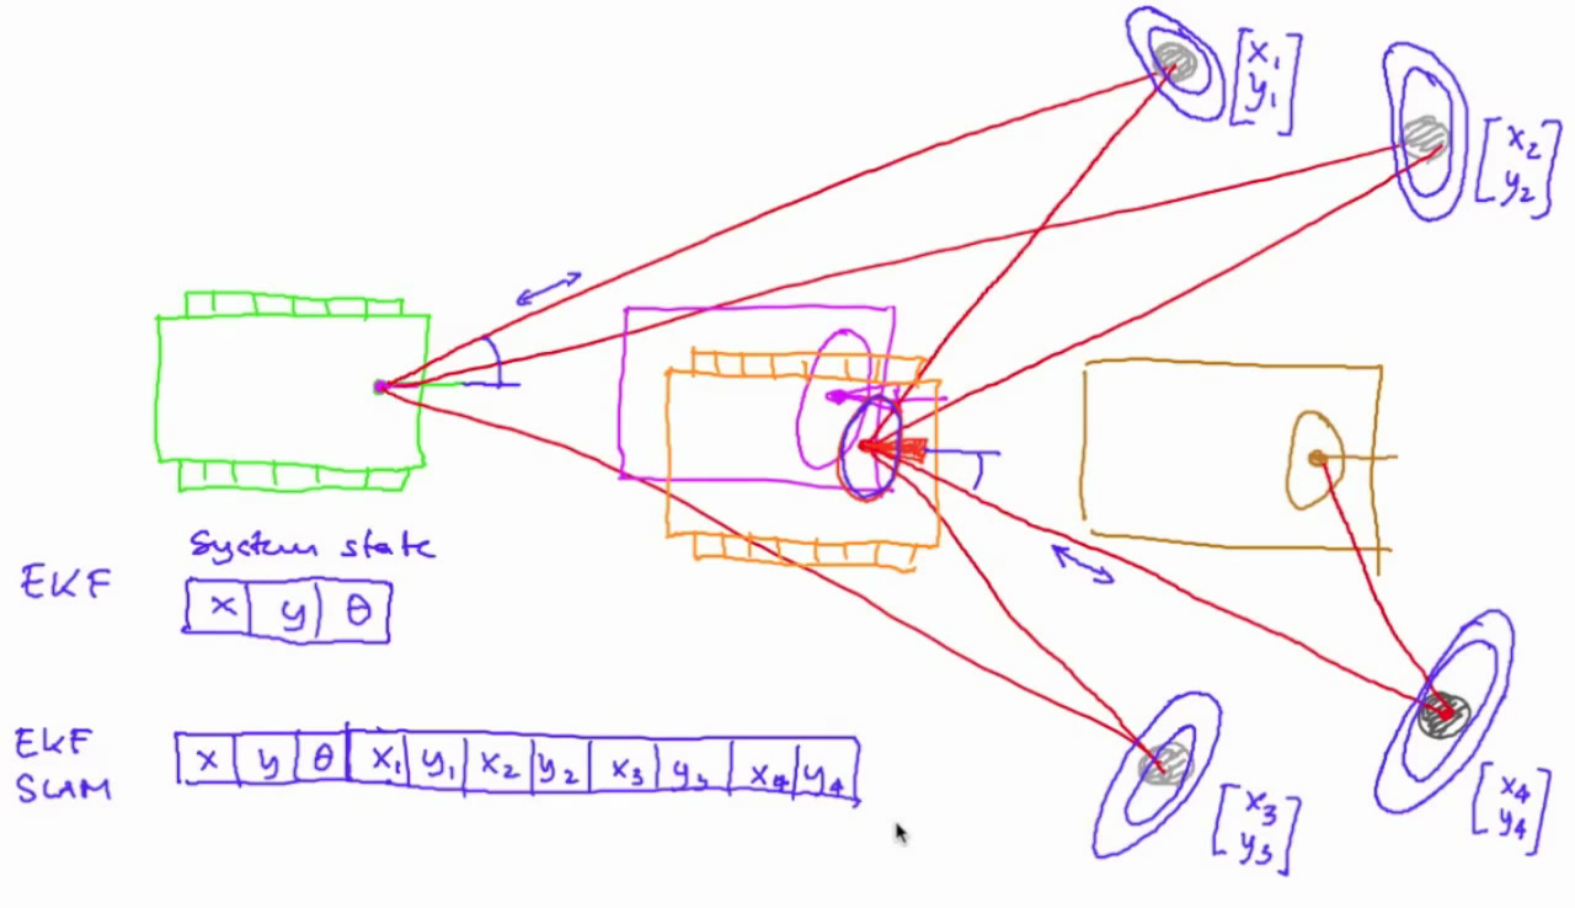 x₁
y₁
x₂
y₂
System state
EKF
x y θ
EKF
SLAM
x y θ x₁ y₁ x₂ y₂ x₃ y₃ x₄ y₄
x₃
y₃
x₄
y₄